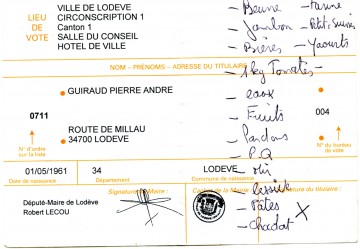 LIEU DE VOTE
VILLE DE LODEVE
CIRCONSCRIPTION 1
Canton 1
SALLE DU CONSEIL
HOTEL DE VILLE
— Beurre
— Farine
— Jambon
— Petit-Suisses
— Bières
— Yaourts
NOM – PRÉNOMS – ADRESSE DU TITULAIRE
— 1 kg Tomates
GUIRAUD PIERRE ANDRE
— eaux
0711
— Fruits
004
N° d'ordre sur la liste
ROUTE DE MILLAU
34700 LODEVE
— P.Q
N° du bureau de vote
01/05/1961
34
LODEVE
Date de naissance
Département
Commune de naissance
Signature du Maire :
Cachet de la Mairie
Signature du titulaire :
— Lessive
Député-Maire de Lodève
Robert LECOU
— Pâtes
X